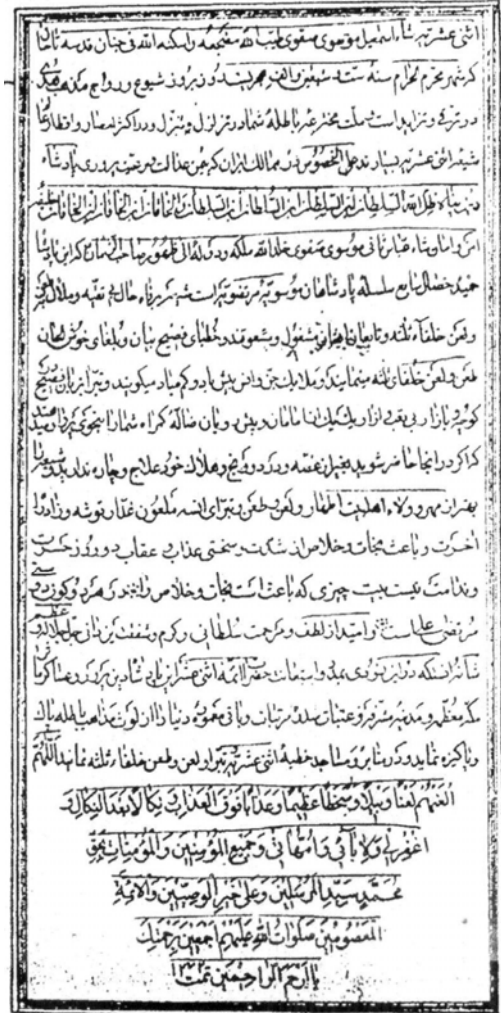 اثنی عشریه شاه اسمعیل موسوی صفوی طیب الله مضجعه و اسکنه الله فی جنان قدسه تا الآن
که شهر محرم الحرام سنه و الف هجریست روز بروز شیوع و رواج مذهب
در ترقی و تزاید است و ملت مخترعه باطله شما در تزلزل و تنزل و در اکثر امصار و اقطار
شیعه اثنی عشریه بسیارند علی الخصوص در ممالک ایران که بیمن عدالت و رعیت پروری پادشاه
دین پناه ظل الله السلطان بن السلطان بن السلطان و الخاقان بن الخاقان بن الخاقان
امن و امان شاه عباس ثانی موسوی صفوی خلد الله ملکه و دولته الی ظهور صاحب الزمان که این پادشاه
حمیده خصال تابع سلسله پادشاهان موسویه مرتضویه است شیعیان فارغ بال بی تقیه و ملال
و لعن خلفاء ثلثه و تابعان ایشان مشغول و مشعوفند و خطبای فصیح بیان و بلغای خوش الحان
طعن و لعن خلفای ثلثه مینمایند و ملایک و جن و انس بیش و کم یاد میکویند و تبرائیان فصیح
کوچه و بازار بی تقیه و ازار یک یک امامان پیش رویان ضاله کمراه شمارا
که اگر در انجا حاضر شوید بغیر از غصه و درد و رنج و هلاک خود علاج و چاره ندارید
بغیر از مهر و ولاء اهلبیت اطهار و لعن و طعن و تبرای ملعون غدار توشه و زاد راه
اخرت و باعث نجات و خلاص از شکست و سختی عذاب و عقاب در روز حسرت
و ندامت نیست چیزی که باعث است نجات و خلاص را
مرتضی علیست و امید از لطف و مرحمت سلطانی و کرم و شفقت یزدانی جل جلاله و
شانه آنست که در این زودی بمدد حضرات ائمه اثنی عشر این پادشاه دین پرور
مکه معظمه و مدینه مشرفه و عتبات سدره مرتبات و باقی معموره دنیا را از لوث مذاهب باطله پاک
و پاکیزه نماید و در منابر و مساجد خطبه اثنی عشریه و تبرا و لعن و طعن خلفاء ثلثه نماید اللهم
العنهم لعنا وبیلا و سخطا عظیما و عذابا فوق العذاب و نکالا بعد النکال و
اغفر لی و لابائی و امهاتی و جمیع المؤمنین و المؤمنات بحق
محمد سید المرسلین و علی خیر الوصیین و الائمة
المعصومین صلوات الله علیهم اجمعین برحمتک
یا ارحم الراحمین تمت